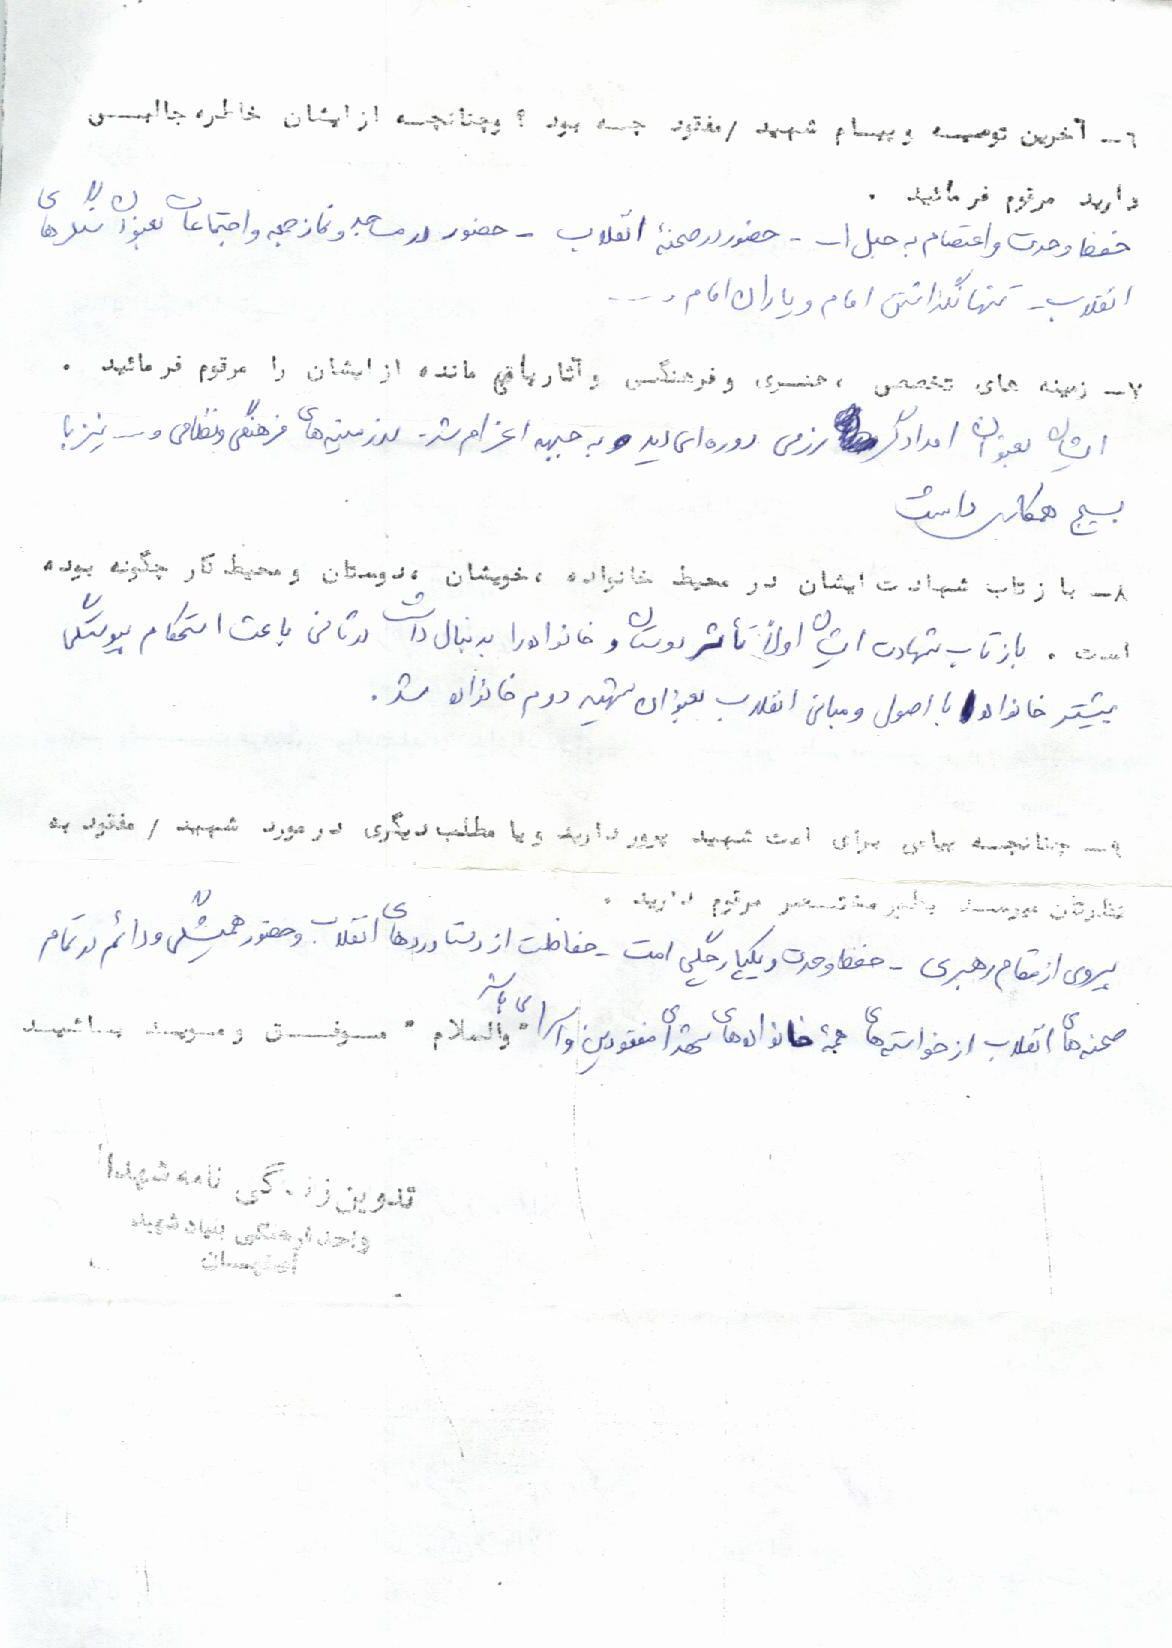 ٦ـ آخرین توصیـه و پیـام شهید /مفقود چـه بـود ؟ وچنانچـه از ایشان خاطره جالبــی
دارید مرقوم فرمائید .
حفظ وحدت و اعتصام به حبل ا... - حضور در صحنهٔ انقلاب - حضور در مساجد و نماز جمعه و اجتماعات بعنوان سنگرهای
انقلاب - تنها نگذاشتن امام و یاران امام و ....
٧ـ زمینه های تخصصی ،هنـری و فرهنگـی و آثار باقی مانده از ایشان را مرقوم فرمائید .
ایشان بعنوان امدادگر رزمی دوره ای دید و به جبهه اعزام شد - در زمینه های فرهنگی و نظامی و ... نیز با
بسیج همکاری داشت
٨ـ بازتاب شهادت ایشان در محیط خانواده ،خویشان ،دوستان و محیط کار چگونه بوده
است . بازتاب شهادت ایشان اولاً تأثر دوستان و خانواده را به دنبال داشت در ثانی باعث استحکام پیوستگی
بیشتر خانواده با اصول و مبانی انقلاب بعنوان شهید دوم خانواده شد .
٩ـ چنانچـه پیامی برای امت شهید پرور دارید و یا مطلب دیگری در مورد شهید / مفقود به
نظرتان میرسد بطور مختصر مرقوم دارید .
پیروی از مقام رهبری - حفظ وحدت و یکپارچگی امت - حفاظت از دستاوردهای انقلاب و حضور همیشگی و دائم در تمام
صحنه های انقلاب از خواسته های همهٔ خانواده های شهدای مفقودین و اسرای می باشد
" والسلام " مـوفـق و مـویـد بـاشیـد
تدوین زندگی نامه شهدا
واحد فرهنگی بنیاد شهید